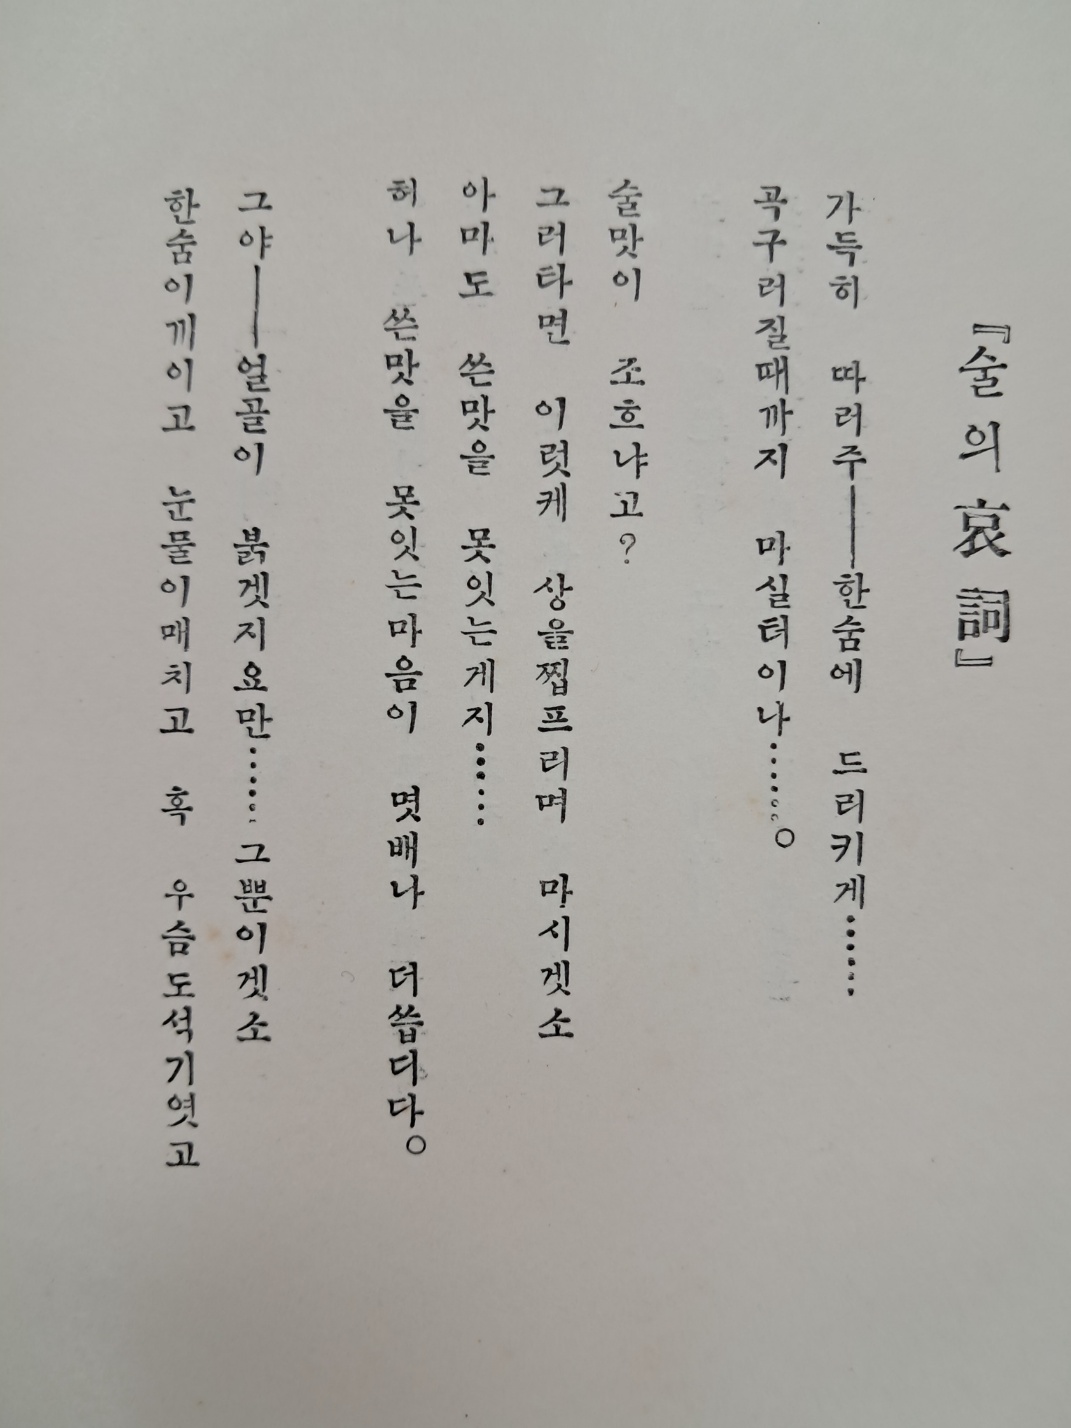 『술의哀詞』
가득히 따러주──한숨에 드리키게……
곡구러질때까지 마실터이나……。
술맛이 조흐냐고?
그러타면 이럿케 상을찝프리며 마시겟소
아마도 쓴맛을 못잇는게지……
허나 쓴맛을 못잇는마음이 몃배나 더씁디다。
그야──얼골이 붉겟지요만……그뿐이겟소
한숨이끼이고 눈물이매치고 혹 우슴도석기엿고